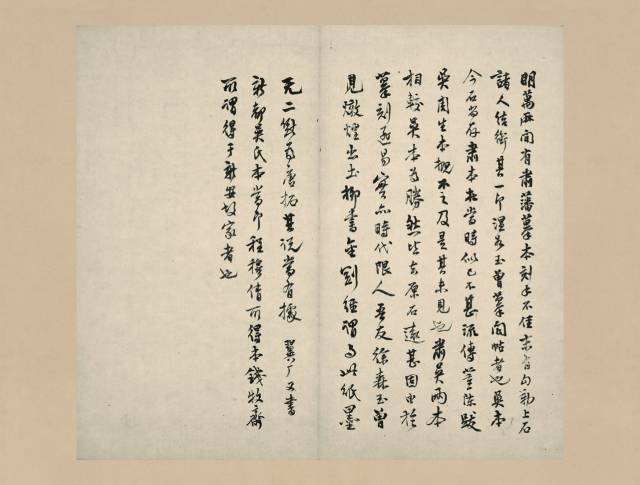 明萬曆間有肅藩摹本刻手不佳末有勾勒上石
諸人結銜其一即溫如玉曾摹閣帖者也吳本
今石尚存肅本在當時似已不甚流傳董陳跋
吳周生本概未之及是其未見也肅吳兩本
相較吳本為勝然皆去原石遠甚固由於
摹刻匪易實亦時代限人吾友徐森玉曾
見燉煌出土柳書金剛經謂與此紙墨
无二斷為唐拓其說當有據 翼厂又書
新都吳氏本當即程穆倩所得本錢牧齋
所謂得于新安故家者也